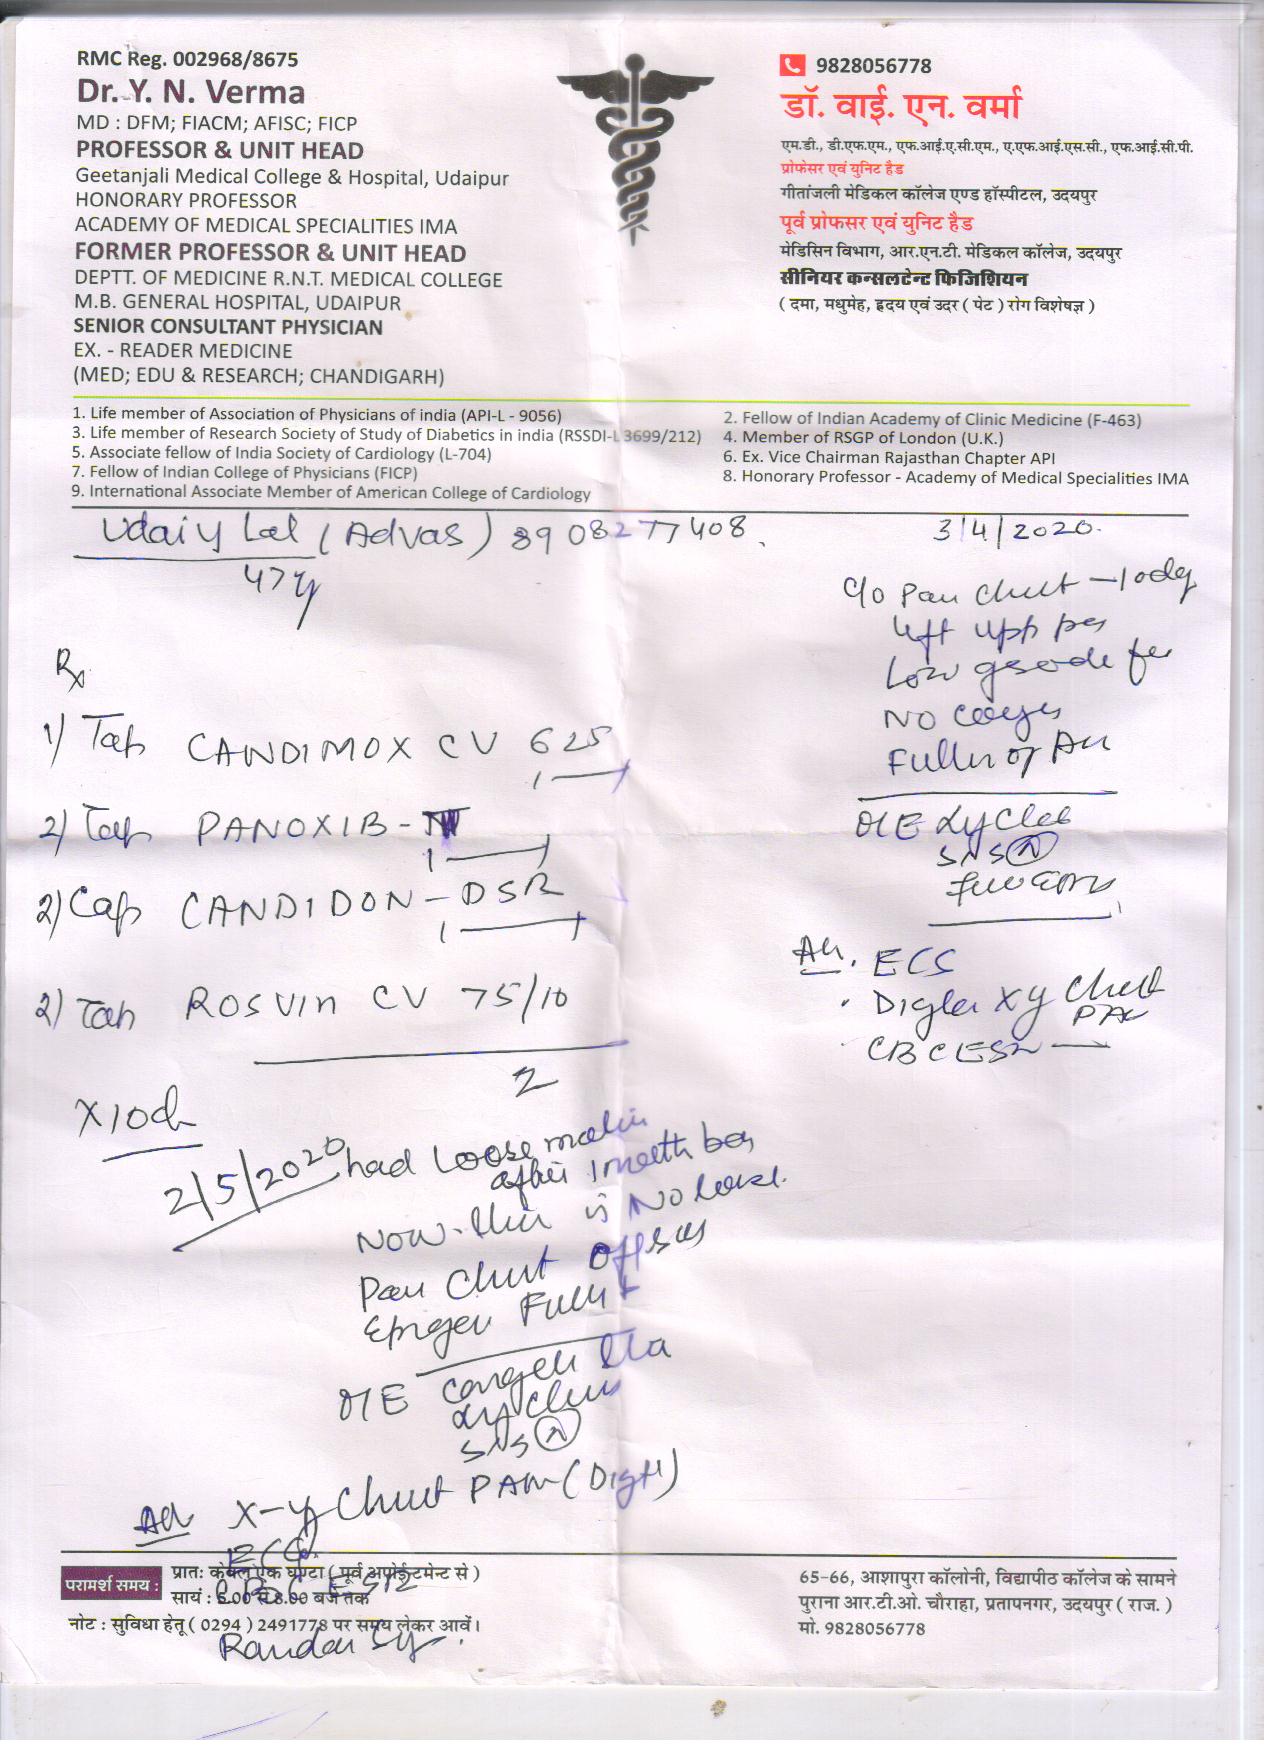 RMC Reg. 002968/8675
Dr. Y. N. Verma
MD : DFM; FIACM; AFISC; FICP
PROFESSOR & UNIT HEAD
Geetanjali Medical College & Hospital, Udaipur
HONORARY PROFESSOR
ACADEMY OF MEDICAL SPECIALITIES IMA
FORMER PROFESSOR & UNIT HEAD
DEPTT. OF MEDICINE R.N.T. MEDICAL COLLEGE
M.B. GENERAL HOSPITAL, UDAIPUR
SENIOR CONSULTANT PHYSICIAN
EX. - READER MEDICINE
(MED; EDU & RESEARCH; CHANDIGARH)
9828056778
डॉ. वाई. एन. वर्मा
एम.डी., डी.एफ.एम., एफ.आई.ए.सी.एम., ए.एफ.आई.एस.सी., एफ.आई.सी.पी.
प्रोफेसर एवं युनिट हैड
गीतांजली मेडिकल कॉलेज एण्ड हॉस्पीटल, उदयपुर
पूर्व प्रोफसर एवं युनिट हैड
मेडिसिन विभाग, आर.एन.टी. मेडिकल कॉलेज, उदयपुर
सीनियर कन्सलटेन्ट फिजिशियन
( दमा, मधुमेह, हृदय एवं उदर ( पेट ) रोग विशेषज्ञ )
1. Life member of Association of Physicians of india (API-L - 9056)
2. Fellow of Indian Academy of Clinic Medicine (F-463)
3. Life member of Research Society of Study of Diabetics in india (RSSDI-L 3699/212)
4. Member of RSGP of London (U.K.)
5. Associate fellow of India Society of Cardiology (L-704)
6. Ex. Vice Chairman Rajasthan Chapter API
7. Fellow of Indian College of Physicians (FICP)
8. Honorary Professor - Academy of Medical Specialities IMA
9. International Associate Member of American College of Cardiology
Udaiy Lal (Advas) 8908277408
3/4/2020
47y
C/o Pain Chest - 10dy
Left upp
Low grade
No
O/E
SNS N
Adv. ECG
Chest
CBC ESR
Rx
1) Tab CANDIMOX CV 625
2) Tab PANOXIB-
2) Cap CANDIDON-DSR
2) Tab ROSVIN CV 75/10
2
X10d
2/5/2020 had loose motion
after 1 month
Now there is No loose
Pain Chest Off
O/E
SNS N
Adv X-ry Chest (Digtl)
ECG
CBC ESR
Random
परामर्श समय :
प्रातः केवल एक घण्टा ( पूर्व अपोईन्टमेन्ट से )
सायं : 5.00 से 8.00 बजे तक
नोट : सुविधा हेतू ( 0294 ) 2491778 पर समय लेकर आवें।
65-66, आशापुरा कॉलोनी, विद्यापीठ कॉलेज के सामने
पुराना आर.टी.ओ. चौराहा, प्रतापनगर, उदयपुर ( राज. )
मो. 9828056778